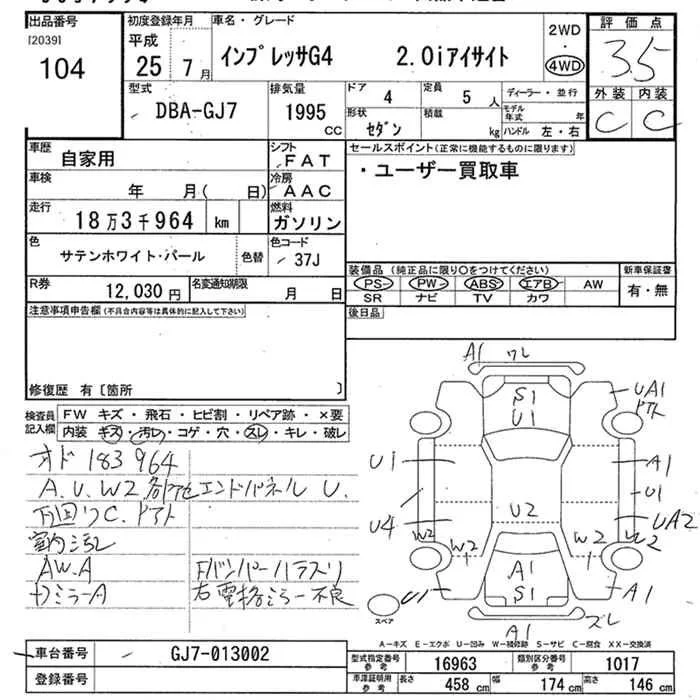 出品番号
[2039]
104
初度登録年月
平成
25年 7月
車名・グレード
インプレッサG4 2.0iアイサイト
2WD
・
4WD
評価点
3.5
外装 内装
C C
型式
DBA-GJ7
排気量
1995
CC
ドア
4
定員
5 人
形状
セダン
積載
kg
ディーラー・並行
モデル年式 年
ハンドル 左・右
車歴
自家用
シフト
FAT
車検
年 月( 日)
冷房
AAC
走行
18万3千964 km
燃料
ガソリン
色
サテンホワイト・パール
色替
色コード
37J
R券
12,030円
名変通知期限
月 日
セールスポイント(正常に機能するものに限ります)
・ユーザー買取車
装備品(純正品に限り○をつけてください)
PS PW ABS エアB AW
SR ナビ TV カワ
新車保証書
有・無
後日品
注意事項申告欄(不具合内容等は具体的に記入して下さい)
修復歴 有〔箇所 〕
検査員
記入欄
FW キズ・飛石・ヒビ割・リペア跡・×要
内装 キズ・汚レ・コゲ・穴・スレ・キレ・破レ
オド 183964
A.U.W2 各所 エンドパネル U.
下回りC.
室内汚レ
AW.A
Fバンパーハガスリ
ミラーA
右電格ミラー不良
A1 ワレ
S1
U1
UA1
U1
A1
U1
U4
U2
UA2
W2
W2
W2
W2
A1
S1
U1
A1
A1
ズレ
スペア
A-キズ E-エクボ U-凹み W-補修跡 S-サビ C-腐食 XX-交換済
車台番号
GJ7-013002
登録番号
型式指定番号
参考
16963
類別区分番号
参考
1017
車庫証明用
参考
長さ 458 cm 幅 174 cm 高さ 146 cm